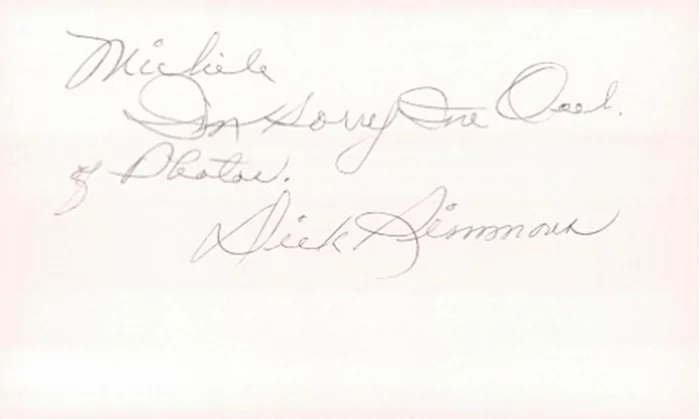 Michele
Im Sorry Ime Out
of Photos.
Dick Simmons